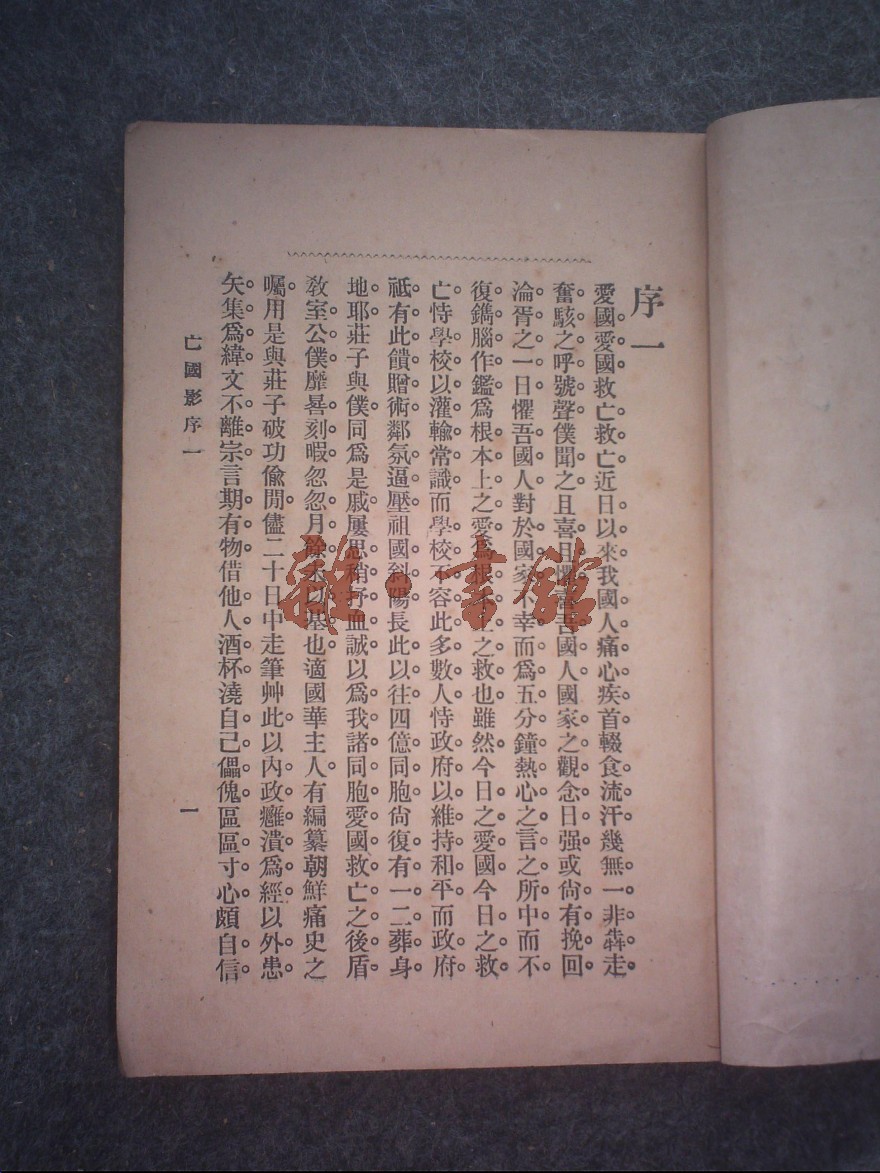 序一
愛國愛國救亡救亡近日以來我國人痛心疾首輟食流汗幾無一非犇走
奮駭之呼號聲僕聞之且喜且懼喜吾國人國家之觀念日强或尙有挽回
淪胥之一日懼吾國人對於國家不幸而爲五分鐘熱心之言之所中而不
復鐫腦作鑑爲根本上之愛爲根本上之救也雖然今日之愛國今日之救
亡恃學校以灌輸常識而學校不容此多數人恃政府以維持和平而政府
祗有此饋贈術鄰氛逼壓祖國斜陽長此以往四億同胞尙復有一二葬身
地耶莊子與僕同爲是戚屢思稍抒血誠以爲我諸同胞愛國救亡之後盾
敎室公僕靡晷刻暇忽忽月餘未以基也適國華主人有編纂朝鮮痛史之
囑用是與莊子破功偸閒儘二十日中走筆艸此以內政癰潰爲經以外患
矢集爲緯文不離宗言期有物借他人酒杯澆自己儡傀區區寸心頗自信
亡國影序一
一
雜·書館